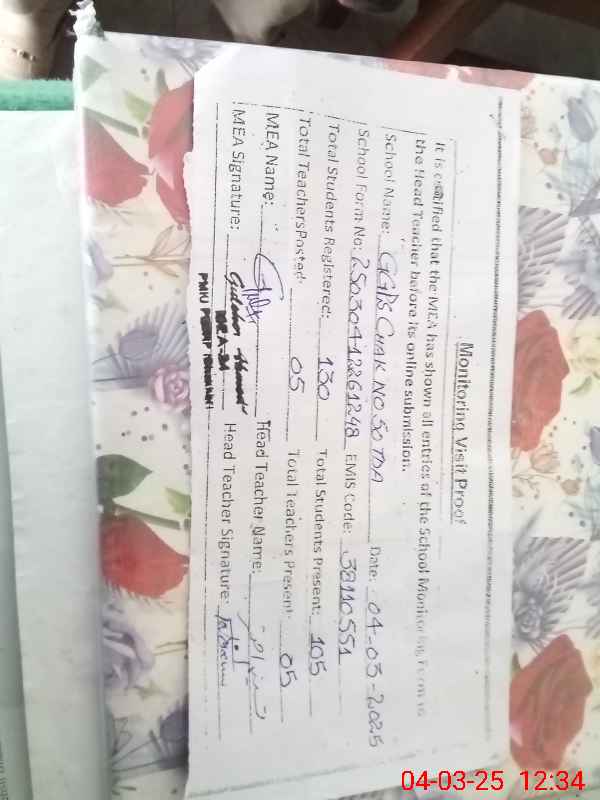 Monitoring Visit Proof
It is certified that the MEA has shown all entries of the School Monitoring Form to
the Head Teacher before its online submission.
School Name: GGPS CHAK NO 50 TDA Date: 04-03-2025
School Form No: 25030412261248 EMIS Code: 38110551
Total Students Registered: 130 Total Students Present: 105
Total TeachersPosted: 05 Total Teachers Present: 05
MEA Name: Head Teacher Name:
MEA Signature: Head Teacher Signature:
MEA-31
PMIU
04-03-25 12:34